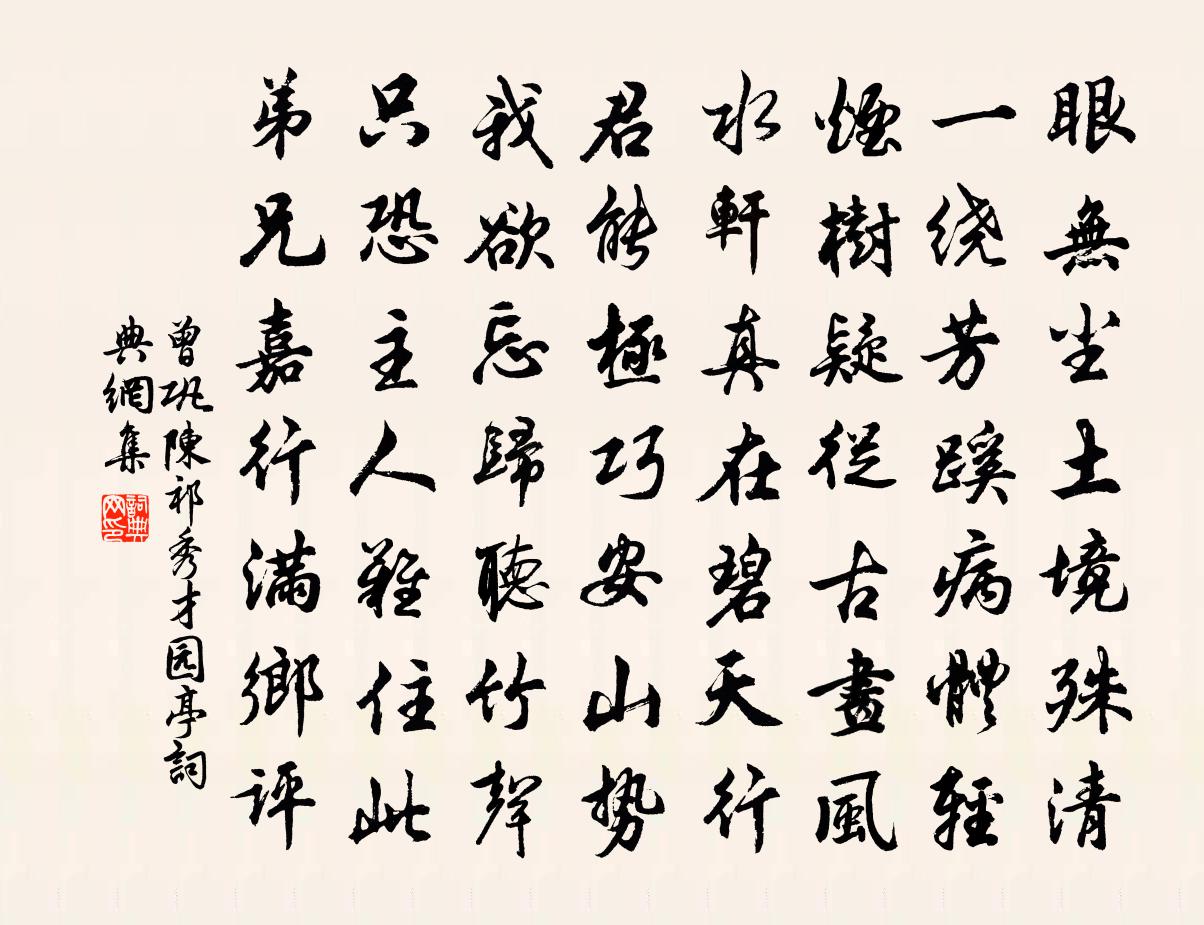 眼無尘土境殊清
一绕芳蹊病體輕
煙樹疑從古畫風
水軒真在碧天行
君能極巧安山势
我欲忘歸聽竹聲
只恐主人難住此
弟兄嘉行滿鄉评
曾巩陳祁秀才园亭詞
典網集
詞典
网印